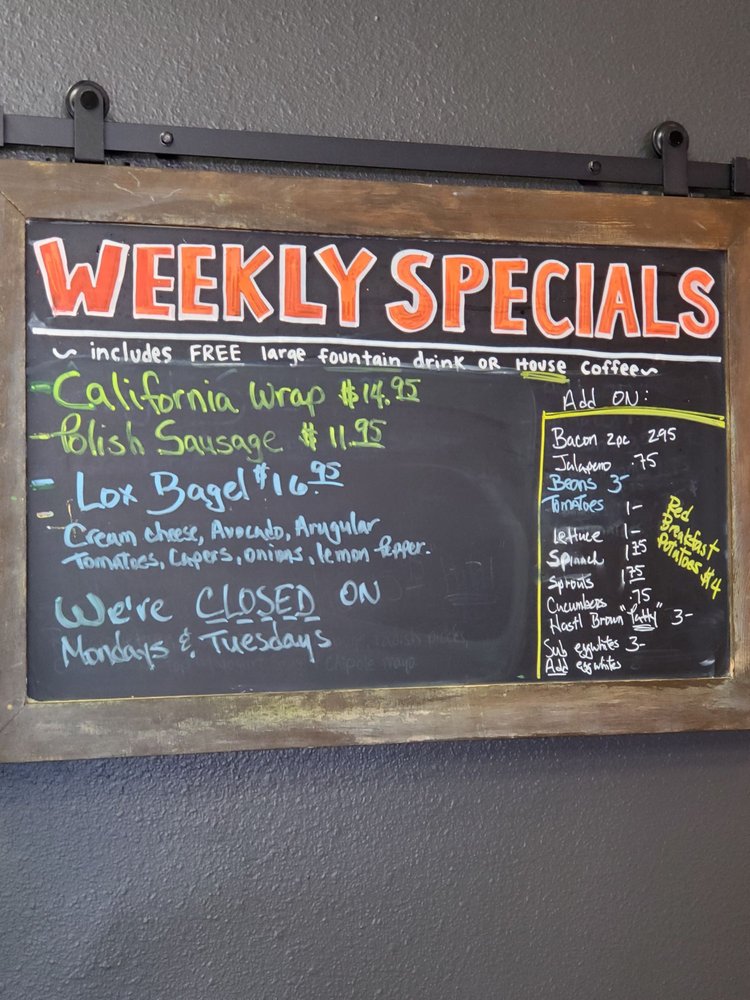 WEEKLY SPECIALS
~ includes FREE large fountain drink OR House coffee~
- California Wrap $14.95
- Polish Sausage $11.95
- Lox Bagel $16.95
- Cream cheese, Avocado, Arugular
Tomatoes, Capers, onions, lemon Pepper.
We're CLOSED ON
Mondays & Tuesdays
Add ON:
Bacon 2pc 295
Jalapeno .75
Beans 3-
Tomatoes 1-
lettuce 1-
Spinach 1.75
Sprouts 1.75
Cucumbers .75
Hastl Brown "Patty" 3-
Sub eggwhites 3-
Add eggwhites
Red
Breakfast
Potatoes $4